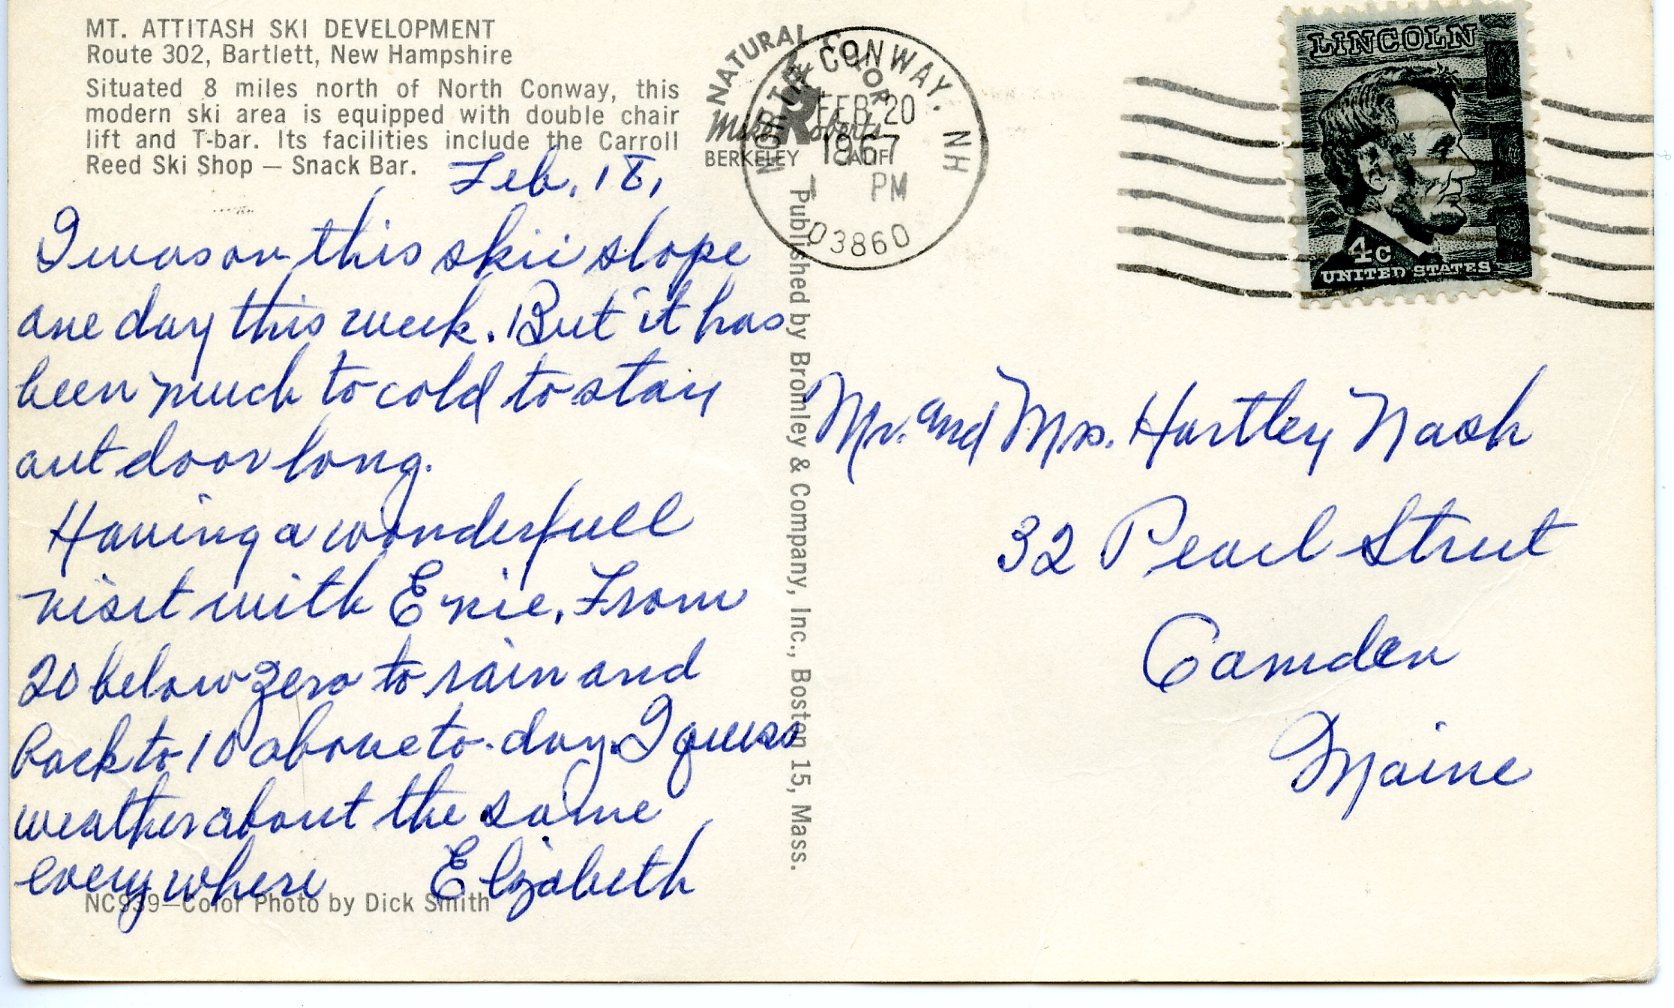 MT. ATTITASH SKI DEVELOPMENT
Route 302, Bartlett, New Hampshire
Situated 8 miles north of North Conway, this
modern ski area is equipped with double chair
lift and T-bar. Its facilities include the Carroll
Reed Ski Shop — Snack Bar.
Feb. 18,
I was on this skii slope
one day this week. But it has
been much to cold to stay
out door long.
Having a wonderfull
visit with Enie. From
20 below zero to rain and
back to 10 above to-day. I guess
weather about the same
everywhere Elizabeth
NC939—Color Photo by Dick Smith
NATURAL COLOR
Mike Roberts
BERKELEY CALIF
Published by Bromley & Company, Inc., Boston 15, Mass.
NORTH CONWAY, NH
FEB 20
1967
PM
03860
LINCOLN
4c
UNITED STATES
Mr. and Mrs. Hartley Nash
32 Pearl Street
Camden
Maine